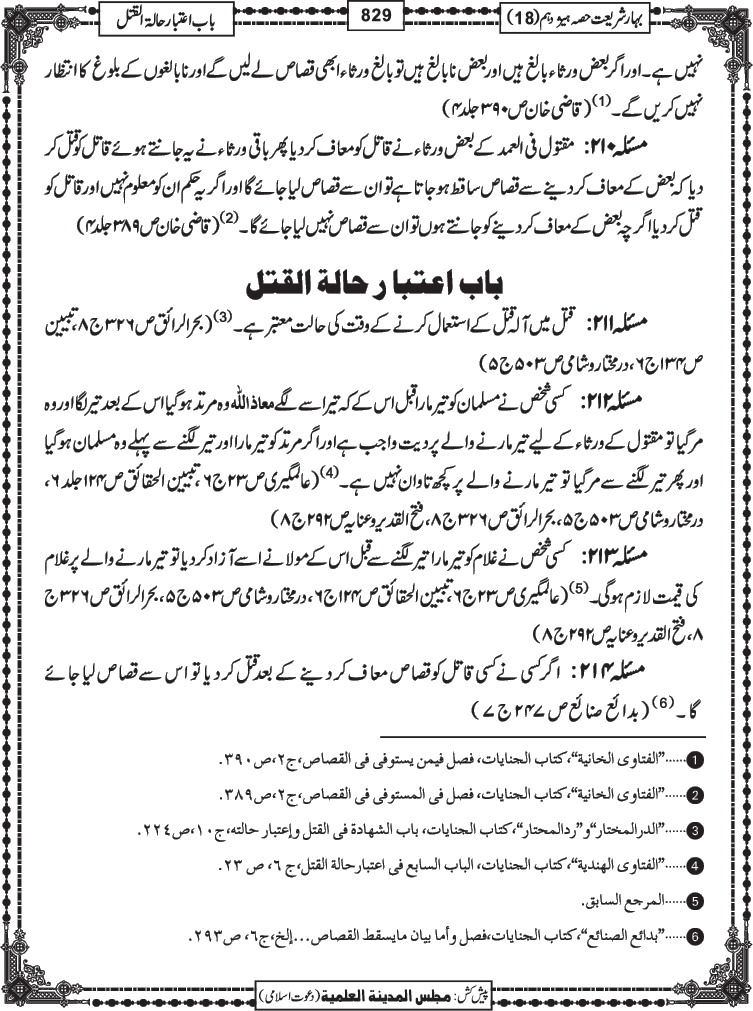 بہارِشریعت حصہ ہیژدہم (18)
829
باب اعتبار حالۃ القتل
نہیں ہے۔ اور اگر بعض ورثاء بالغ ہیں اور بعض نابالغ ہیں تو بالغ ورثاء ابھی قصاص لے لیں گے اور نابالغوں کے بلوغ کا انتظار
نہیں کریں گے۔(1) (قاضی خان ص ۳۹۰ جلد ۴)
مسئلہ ۲۱۰: مقتول فی العمد کے بعض ورثاء نے قاتل کو معاف کر دیا پھر باقی ورثاء نے یہ جانتے ہوئے قاتل کو قتل کر
دیا کہ بعض کے معاف کر دینے سے قصاص ساقط ہو جاتا ہے تو ان سے قصاص لیا جائے گا اور اگر یہ حکم ان کو معلوم نہیں اور قاتل کو
قتل کر دیا اگرچہ بعض کے معاف کر دینے کو جانتے ہوں تو ان سے قصاص نہیں لیا جائے گا۔(2) (قاضی خان ص ۳۸۹ جلد ۴)
باب اعتبار حالة القتل
مسئلہ ۲۱۱: قتل میں آلہ قتل کے استعمال کرنے کے وقت کی حالت معتبر ہے۔(3) (بحر الرائق ص ۳۲۶ ج ۸، تبیین
ص ۱۳۴ ج ۶، در مختار و شامی ص ۵۰۳ ج ۵)
مسئلہ ۲۱۲: کسی شخص نے مسلمان کو تیر مارا قبل اس کے کہ تیر اسے لگے معاذ اللہ وہ مرتد ہو گیا اس کے بعد تیر لگا اور وہ
مر گیا تو مقتول کے ورثاء کے لیے تیر مارنے والے پر دیت واجب ہے اور اگر مرتد کو تیر مارا اور تیر لگنے سے پہلے وہ مسلمان ہو گیا
اور پھر تیر لگنے سے مر گیا تو تیر مارنے والے پر کچھ تاوان نہیں ہے۔(4) (عالمگیری ص ۲۳ ج ۶، تبیین الحقائق ص ۱۲۴ جلد ۶،
در مختار و شامی ص ۵۰۳ ج ۵، بحر الرائق ص ۳۲۶ ج ۸، فتح القدیر و عنایہ ص ۲۹۲ ج ۸)
مسئلہ ۲۱۳: کسی شخص نے غلام کو تیر مارا تیر لگنے سے قبل اس کے مولا نے اسے آزاد کر دیا تو تیر مارنے والے پر غلام
کی قیمت لازم ہو گی۔(5) (عالمگیری ص ۲۳ ج ۶، تبیین الحقائق ص ۱۲۴ ج ۶، در مختار و شامی ص ۵۰۳ ج ۵، بحر الرائق ص ۳۲۶ ج
۸، فتح القدیر و عنایہ ص ۲۹۲ ج ۸)
مسئلہ ۲۱۴: اگر کسی نے کسی قاتل کو قصاص معاف کر دینے کے بعد قتل کر دیا تو اس سے قصاص لیا جائے
گا۔(6) (بدائع صنائع ص ۲۴۷ ج ۷)
1 ......"الفتاوی الخانیة"، کتاب الجنایات، فصل فیمن یستوفی فی القصاص، ج۲، ص۳۹۰.
2 ......"الفتاوی الخانیة"، کتاب الجنایات، فصل فی المستوفی فی القصاص، ج۲، ص۳۸۹.
3 ......"الدرالمختار" و "ردالمحتار"، کتاب الجنایات، باب الشهادة فی القتل وإعتبار حالته، ج۱۰، ص۲۲٤.
4 ......"الفتاوی الهندیة"، کتاب الجنایات، الباب السابع فی اعتبارحالة القتل، ج ۶، ص ۲۳.
5 ......المرجع السابق.
6 ......"بدائع الصنائع"، کتاب الجنایات، فصل وأما بیان مایسقط القصاص...إلخ، ج۶، ص۲۹۳.
پیش کش: مجلس المدینة العلمیة (دعوت اسلامی)